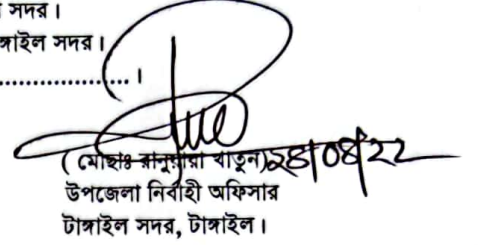 সদর।
ঙ্গাইল সদর।
....................।
( মোছাঃ রানুয়ারা খাতুন)২৪/০৪/২২
উপজেলা নির্বাহী অফিসার
টাঙ্গাইল সদর, টাঙ্গাইল।